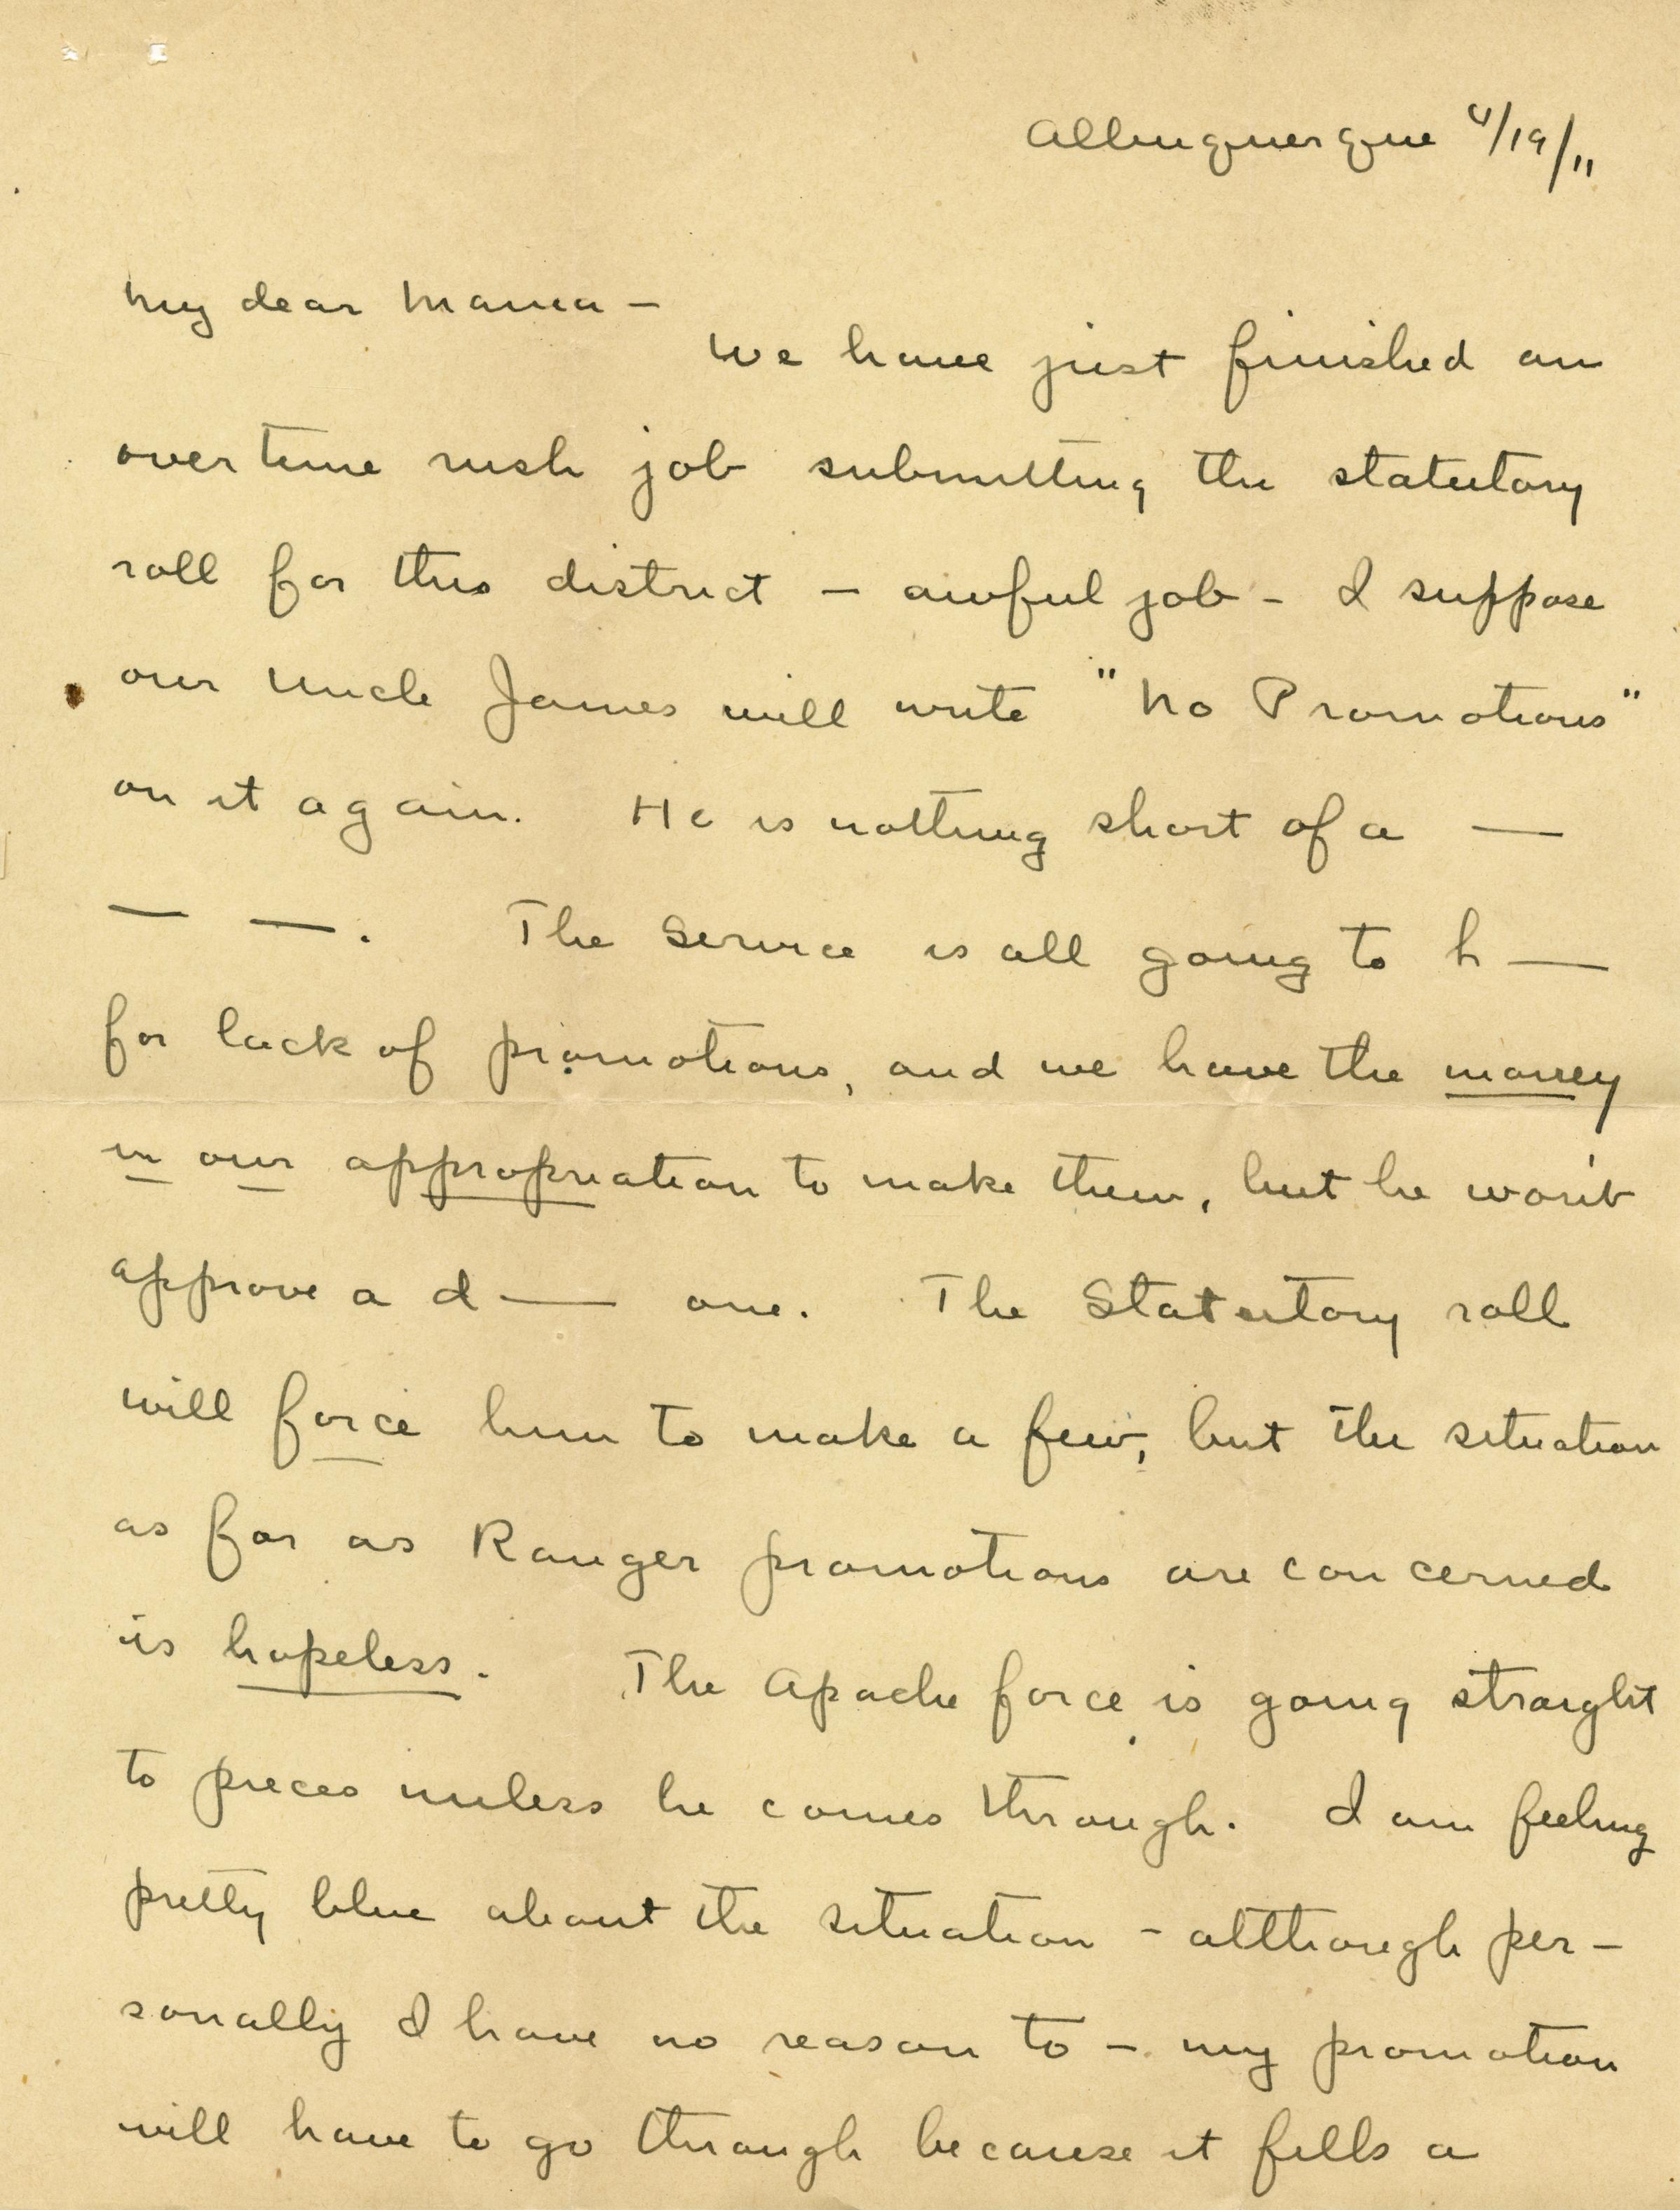 Albuquerque 4/19/11
My dear Mama —
We have just finished an
overtime rush job submitting the statutory
roll for this district — awful job - I suppose
our Uncle James will write "No Promotions"
on it again. He is nothing short of a —
— —. The Service is all going to h—
for lack of promotions, and we have the money
in our appropriation to make them, but he won't
approve a d— one. The Statutory roll
will force him to make a few, but the situation
as far as Ranger promotions are concerned
is hopeless. The Apache force is going straight
to pieces unless he comes through. I am feeling
pretty blue about the situation - although per-
sonally I have no reason to - my promotion
will have to go through because it fills a